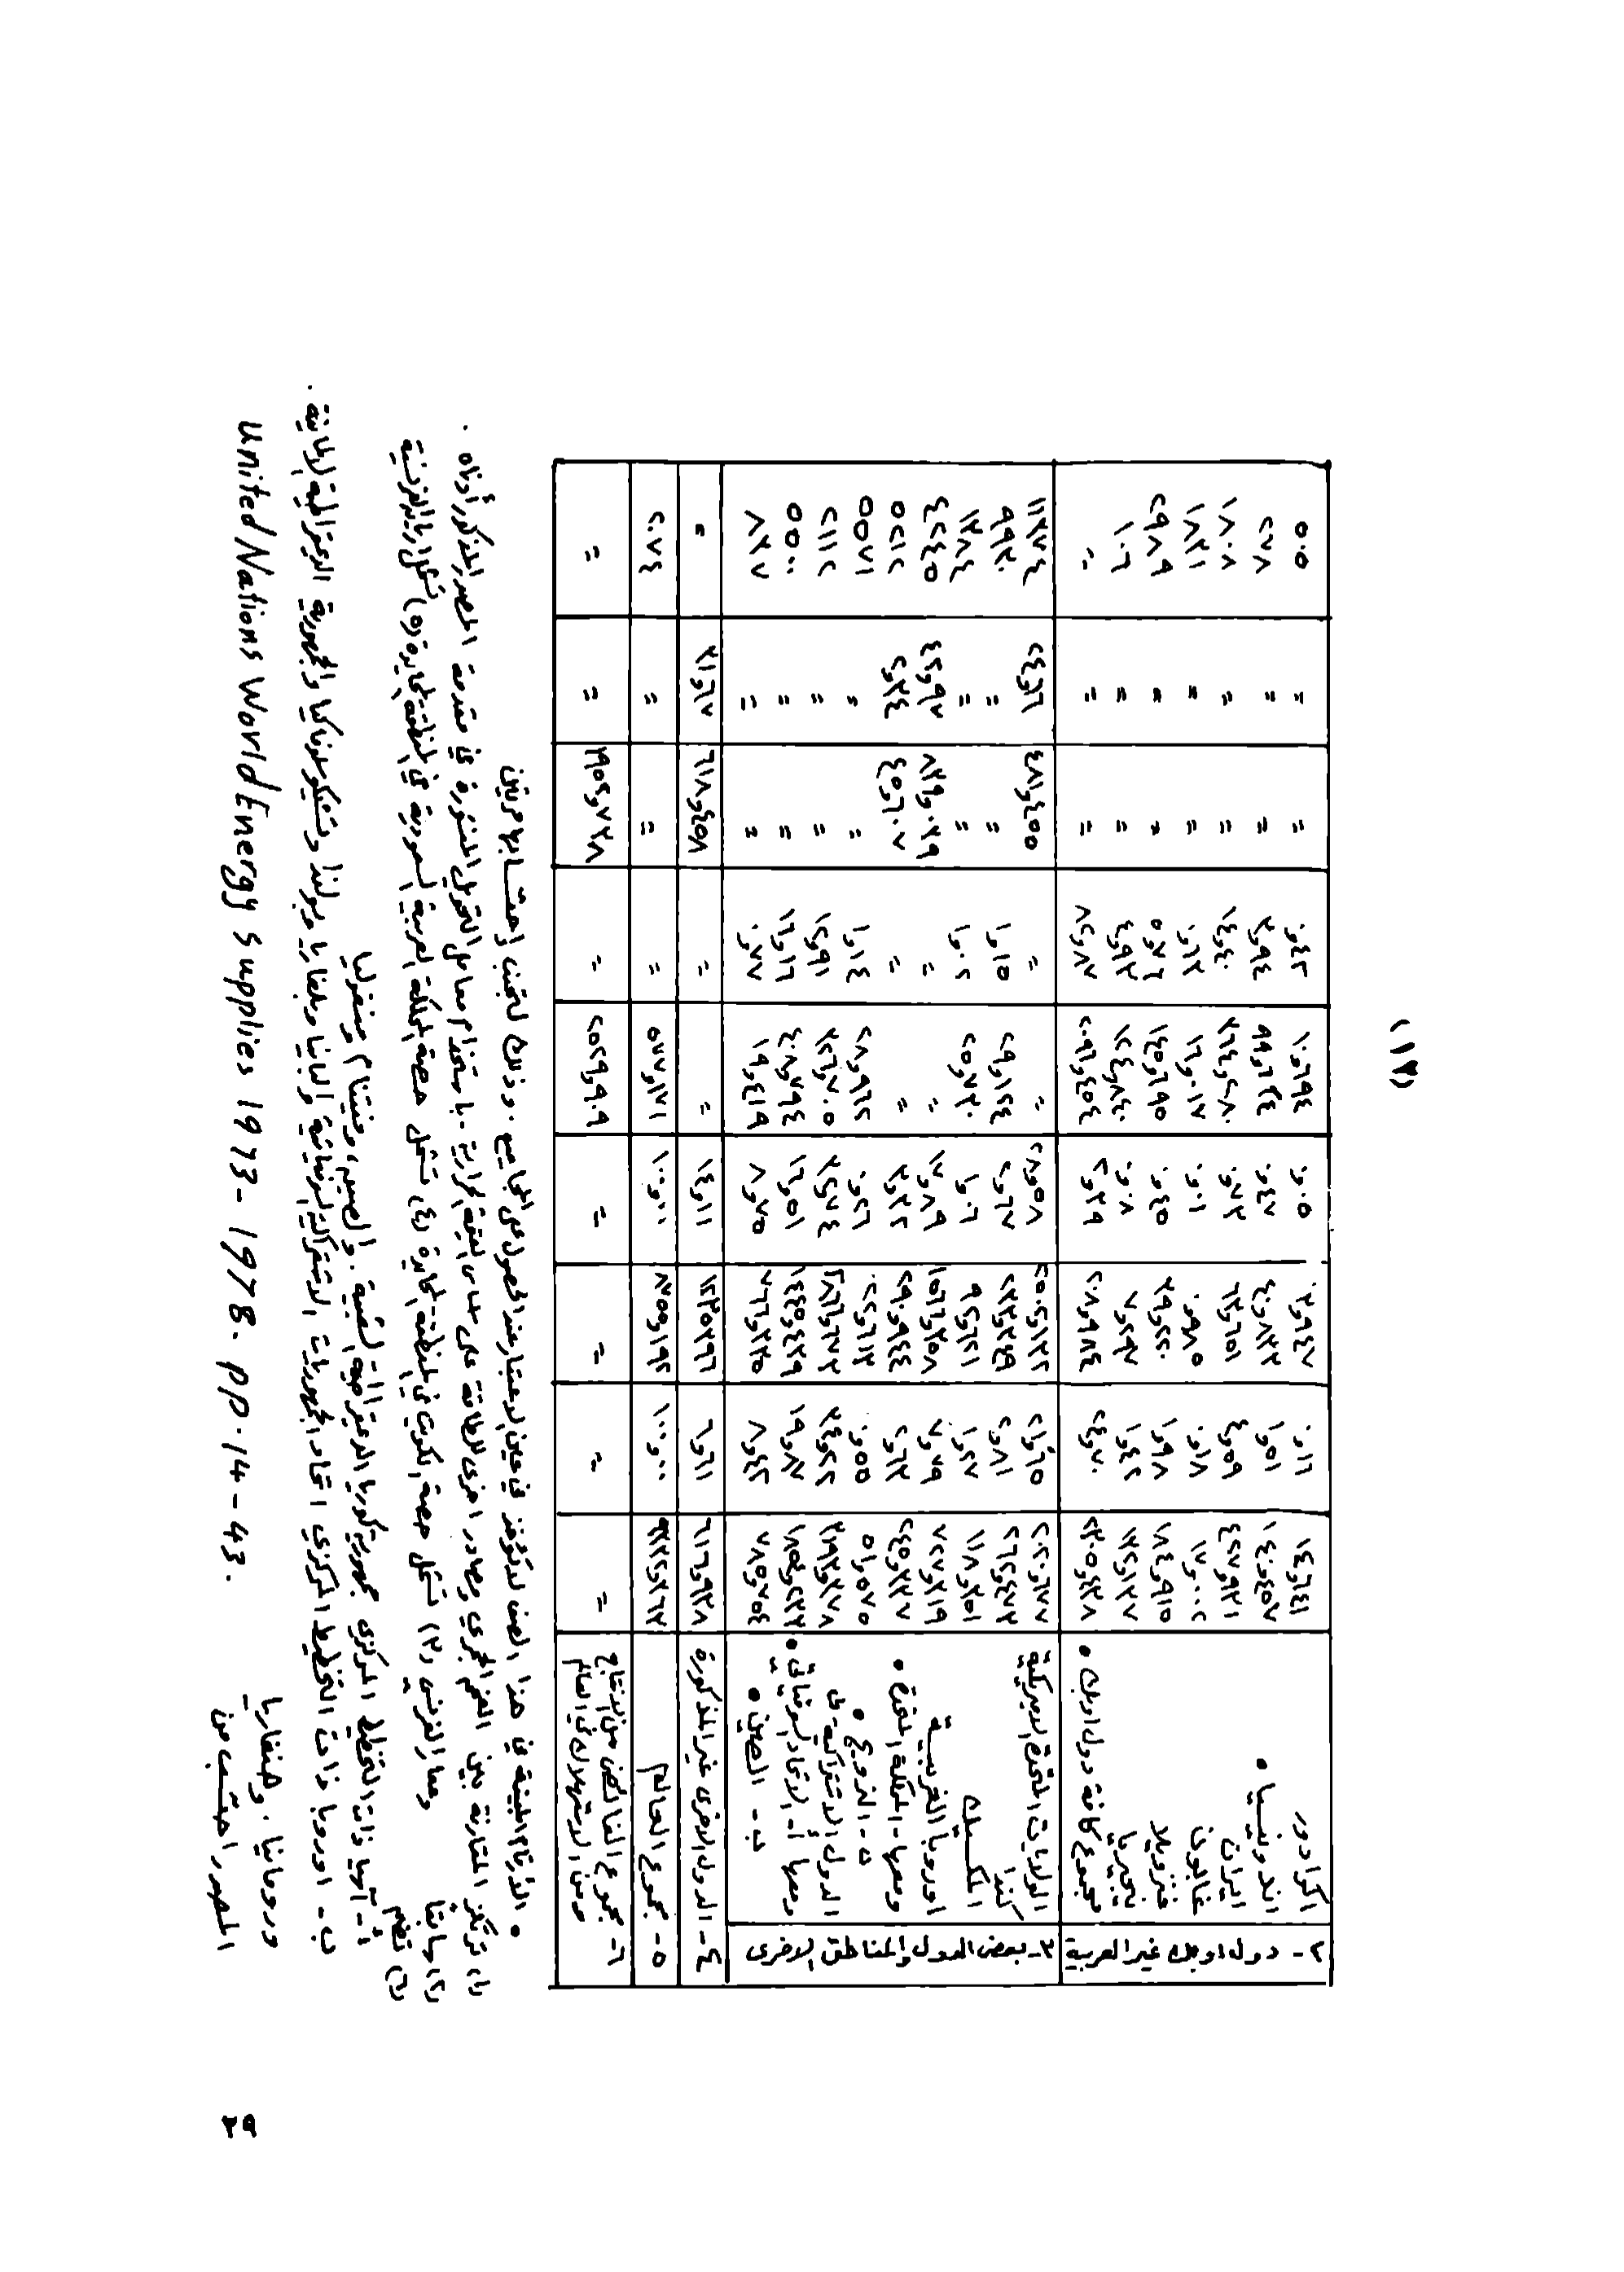 (١١٣)
٢- دول اوبك غير العربية
اكوادور ١٤و٦٤١ ٠و١٦ ٣و٩٤٧ ٠و٠٥ ١٠و٦٩٤ ٠و٤٣ = = ٥٠٥
اندونيسيا • ١٤٠و٤٥٧ ١و٥١ ٤٠و٨٣٣ ٠و٤٧ ٩٩و٦٢٤ ٣و٩٤ = = ٢٧٨
ايران ٤٢٧و٩٣١ ٤و٥٩ ٦٣و٦٥١ ٠و٧٣ ٣٦٤و٢٨٠ ١٤و٤٠ = = ١٨٠٨
غابون ١٧و٠٠٢ ٠و١٨ ٠و٩٨٥ ٠و٠١ ١٦و٠١٧ ٠و٦٣ = = ١٨٣١
فنزويلا ١٨٤و٩١٥ ١و٩٨ ٣٩و٢٢٠ ٠و٤٥ ١٤٥و٦٩٥ ٥و٧٦ = = ٢٩٨٩
نيجيريا ١٣٢و١٣٧ ١و٤٢ ٧و٢٩٧ ٠و٠٨ ١٢٤و٨٤٠ ٤و٩٣ = = ١٠٦
مجموع كافة دول اوبك • ٢٣٠٥و٤٣٨ ٢٤و٧٠ ٢٠٨و٩٨٤ ٢و٣٩ ٢٠٩٦و٤٥٤ ٨٢و٨٧ = = =
٣- بعض الدول والمناطق الاخرى
الولايات المتحدة الامريكية ٢٠٢٠و٦٧٧ ٢١و٦٥ ٢٥٠٢و١٣٢ ٢٨و٥٨ = = ٤٨١و٤٥٥ ٢٤و٦٦ ١١٣٧٤
كندا ٢٦٢و٤٧٣ ٢و٨١ ٢٣٣و٣٤٩ ٢و٦٧ ٢٩و١٢٤ ١و١٥ = = ٩٩٣٠
المكسيك ١١٨و٣٥١ ١و٢٧ ٩٢و٦٢١ ١و٠٦ ٢٥و٧٣٠ ١و٠٢ = = ١٣٨٤
اوروبا الغربية ٧٢٧و٣١٩ ٧و٧٩ ١٥٦٦و٣٥٨ ١٧و٨٩ = = ٨٣٩و٠٣٩ ٤٢و٩٧ ٤٢٤٥
ومنها- المملكة المتحدة • ٢٤٥و٣٣٧ ٢و٦٣ ٢٩٠و٩٤٤ ٣و٣٢ = = ٤٥و٦٠٧ ٢و٣٤ ٥٢١٢
ت- النرويج • ٥١و٥٧٥ ٠و٥٥ ٢٢و٦١٣ ٠و٢٦ ٢٨و٩٦٢ ١و١٤ = = ٥٥٧١
الدول الاشتراكية ٣١٩٣و٣٧٨ ٣٤و٢٢ ٢٨٦٦و٦٧٣ ٣٢و٧٤ ٣٢٦و٧٠٥ ١٢و٩١ = = ٢١١٢
ومنها أ- الاتحاد السوفياتي • ١٩و٨٧ ١٤٤٥و٤٣٩ ١٦و٥١ ٤٠٧و٧٩٤ ١٦و١٦ = = ٥٥٠٠
ب- الصين • ٧٨٥و٧٥٤ ٨و٤٢ ٧٦٦و٣٣٥ ٨و٧٥ ١٩و٤١٩ ٠و٧٧ = = ٨٣٧
٤- الدول الاخرى غير المذكورة ٦١٦و٩٣٨ ٦و٦١ ١٢٣٥و٣٩٦ ١٤و١١ = = ٦١٨و٤٥٨ ٣١و٦٧ =
٥- مجموع العالم ٩٣٣٢و٢٦٣ ١٠٠و٠٠ ٨٧٥٥و٠٩٢ ١٠٠و٠٠ ٥٧٧و١٧١ = = = ٢٠٧٤
٦- مجموع الفائض من الانتاج
ومن الاستهلاك في العالم = = = = ٢٥٢٩و٩٠٩ = ١٩٥٢و٧٣٨ = =
• الأرقام المبينة في هذا الصف لا تؤخذ في عين الاعتبار عند الحصول على المجاميع . وذلك لتجنب احتسابها مرتين
(١) ترتكز المقارنة بين الفحم الحجري ومصادر اخرى للطاقة على اساس القيمة الحرارية . باستخدام معامل التحويل المنشورة في مقدمة المصدر المذكور أدناه .
(٢) حسابنا وعمار الفرنسي (٣) تشمل حصة الكويت في المنطقة المحايدة (٤) تشمل حصة المملكة العربية السعودية في المنطقة المحايدة (٥) تشمل اريا الفرنسية
(٦) تضم
أ- آسيا ذات التخطيط المركزي جمهورية كوريا الديمقراطية الشعبية . والصين ، وفيتنام ومنغوليا
ب- اوروبا ذات التخطيط المركزي اتحاد الجمهوريات الاشتراكية السوفياتية والبانيا وبلغاريا وبولندا وتشيكوسلوفاكيا والجمهورية الديمقراطية الالمانية .
ورومانيا . وهنغاريا
المصدر احتسبت من United Nations World Energy Supplies 1973-1978. pp.14-43.
٢٩